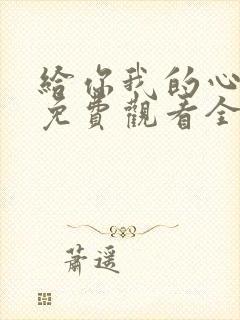 給你我的心
免費觀看全
蕭遥